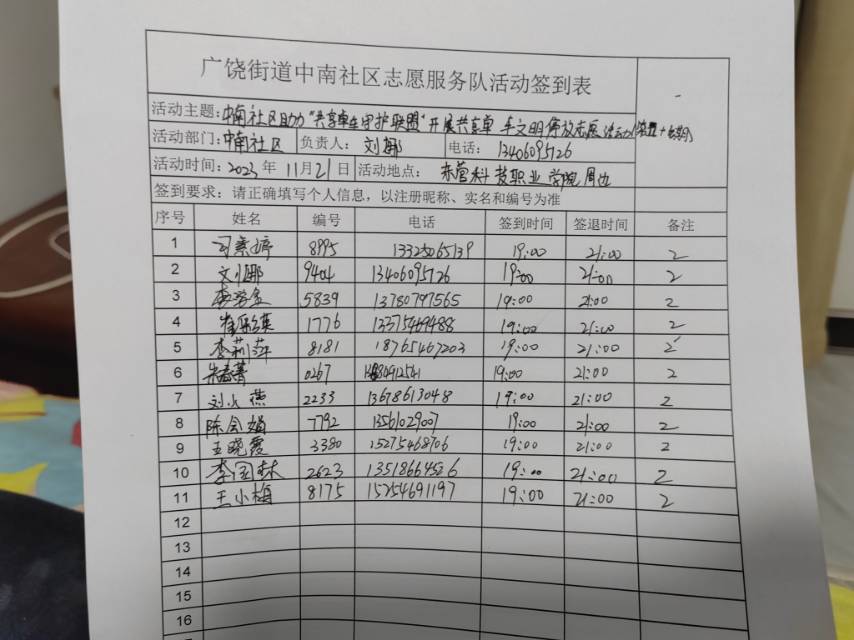 广饶街道中南社区志愿服务队活动签到表
活动主题：中南社区助力"共享单车守护联盟"开展共享单 车文明停放志愿活动
活动部门：中南社区 负责人： 刘娜 电话： 13406095126
活动时间：2023 年 11月21日 活动地点： 东营科技职业学院周边
签到要求：请正确填写个人信息，以注册昵称、实名和编号为准
序号 姓名 编号 电话 签到时间 签退时间 备注
1 8995 13325065139 19:00 21:00 2
2 刘娜 9404 13406095126 19:00 21:00 2
3 5839 13780797565 19:00 21:00 2
4 1776 13375469488 19:00 21:00 2
5 李莉萍 8181 18765467203 19:00 21:00 2
6 0267 19:00 21:00 2
7 刘火燕 2233 13678613048 19:00 21:00 2
8 陈会娟 7792 13561029007 19:00 21:00 2
9 王晓霞 3380 15275468706 19:00 21:00 2
10 李国林 2623 19:00 21:00 2
11 王小梅 8175 15254691197 19:00 21:00 2
12
13
14
15
16